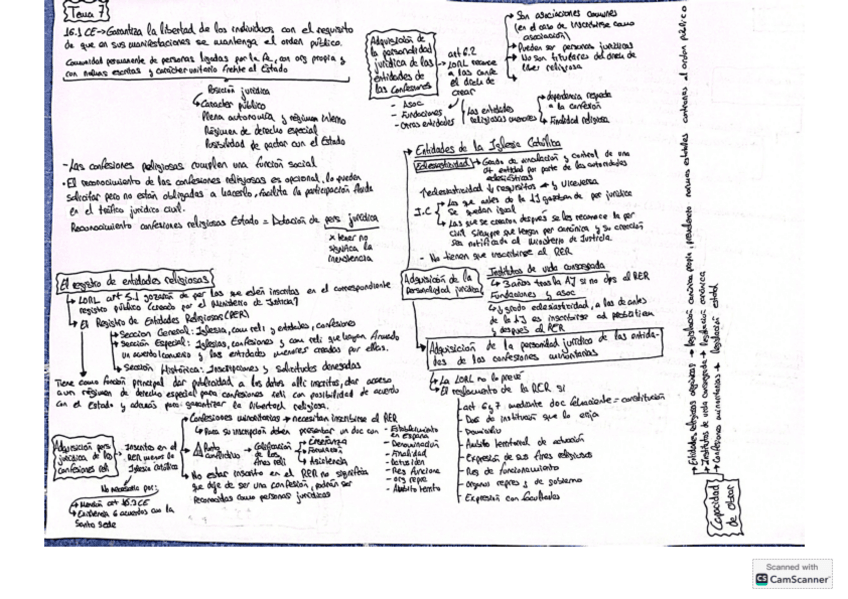 Tema 7
16.1 CE → Garantiza la libertad de los individuos con el requisito
de que en sus manifestaciones se mantenga el orden público.
Comunidad permanente de personas ligadas por la con org propia y
con normas escritas y carácter unitario frente al Estado
Posición jurídica
Carácter público
Plena autonomía y régimen interno
Régimen de derecho especial
Posibilidad de pactar con el Estado
- Las confesiones religiosas cumplen una función social
- El reconocimiento de las confesiones religiosas es opcional, lo pueden
solicitar pero no están obligadas a hacerlo, facilita la participación
en el tráfico jurídico civil.
Reconocimiento confesiones religiosas Estado = Dotación de pers jurídica
x tener no
significa la
inexistencia
El registro de entidades religiosas
LORL art 5.1 gozarán de per las que estén inscritas en el correspondiente
registro público (creado por el Ministerio de Justicia)
El Registro de Entidades Religiosas (RER)
→ Sección General: Iglesia, com reli y entidades, confesiones
→ Sección Especial: Iglesias, confesiones y com reli que hayan firmado
un acuerdo/convenio y las entidades menores creadas por ellas.
→ Sección Histórica: Inscripciones y solicitudes denegadas
Tiene como función principal dar publicidad a los datos allí inscritos, dar acceso
a un régimen de derecho especial para confesiones reli con posibilidad de acuerdo
con el Estado y además para garantizar la libertad religiosa.
Adquisición pers
jurídica de las
confesiones reli
Inscritas en el
RER menos la
Iglesia Católica
No necesario por:
→ Mención art 16.3 CE
→ Existencia acuerdos con la
Santa Sede
Confesiones minoritarias → necesitan inscribirse al RER
Para su inscripción deben presentar un doc con
- Establecimiento
en España
- Denominación
- Finalidad
- Res funciona
- org repre
- Ámbito territo
calificación
de los
fines reli
→ Enseñanza
→ Formación
→ Asistencia
No estar inscrito en el RER no significa
que deje de ser una confesión, podrán ser
reconocidas como personas jurídicas
Adquisición de
la personalidad
jurídica de las
entidades de
las confesiones
art 6.2
LORL reconoce
a las confe
el drch de
crear
- Asoc
- Fundaciones
- Otras entidades
Las entidades
religiosas menores
→ dependencia respecto
a la confesión
→ Finalidad religiosa
→ Son asociaciones comunes
(en el caso de inscribirse como
asociación)
→ Pueden ser personas jurídicas
→ No son titulares del drch de
liber religiosa
Entidades de la Iglesia Católica
Eclesiasticidad → Grado de vinculación y control de una
entidad por parte de las autoridades
eclesiásticas
↑ eclesiasticidad ↓ requisitos → y viceversa
I.C
Las que antes de la AJ gozaban de per jurídica
se quedan igual
Las que se crearon después se les reconoce la per
civil siempre que tengan per canónica y su creación
sea notificada al Ministerio de Justicia.
- No tienen que inscribirse al RER
Adquisición de la
personalidad jurídica
Institutos de vida consagrada
→ 3 años tras la AJ si no dps al RER
Fundaciones y asoc
↓ grado eclesiasticidad, a las de antes
de la AJ es inscribirse ad
y después al RER
Adquisición de la personalidad jurídica de las entida-
des de las confesiones minoritarias
→ La LORL no lo prevé
→ El reglamento de la RER sí
art 6 y 7 mediante doc fehaciente = constitución
- Doc de institución que lo erija
- Domicilio
- Ámbito territorial de actuación
- Expresión de sus fines religiosos
- Res de funcionamiento
- órganos repres y de gobierno
- Expresión con facultades
Capacidad
de obrar
→ Entidades religiosas orgánicas → legislación canónica propia, prevaleciendo normas estatales contrarias al orden público
→ Institutos de vida consagrada → legislación canónica
→ Confesiones minoritarias → legislación estatal
Scanned with
CS CamScanner